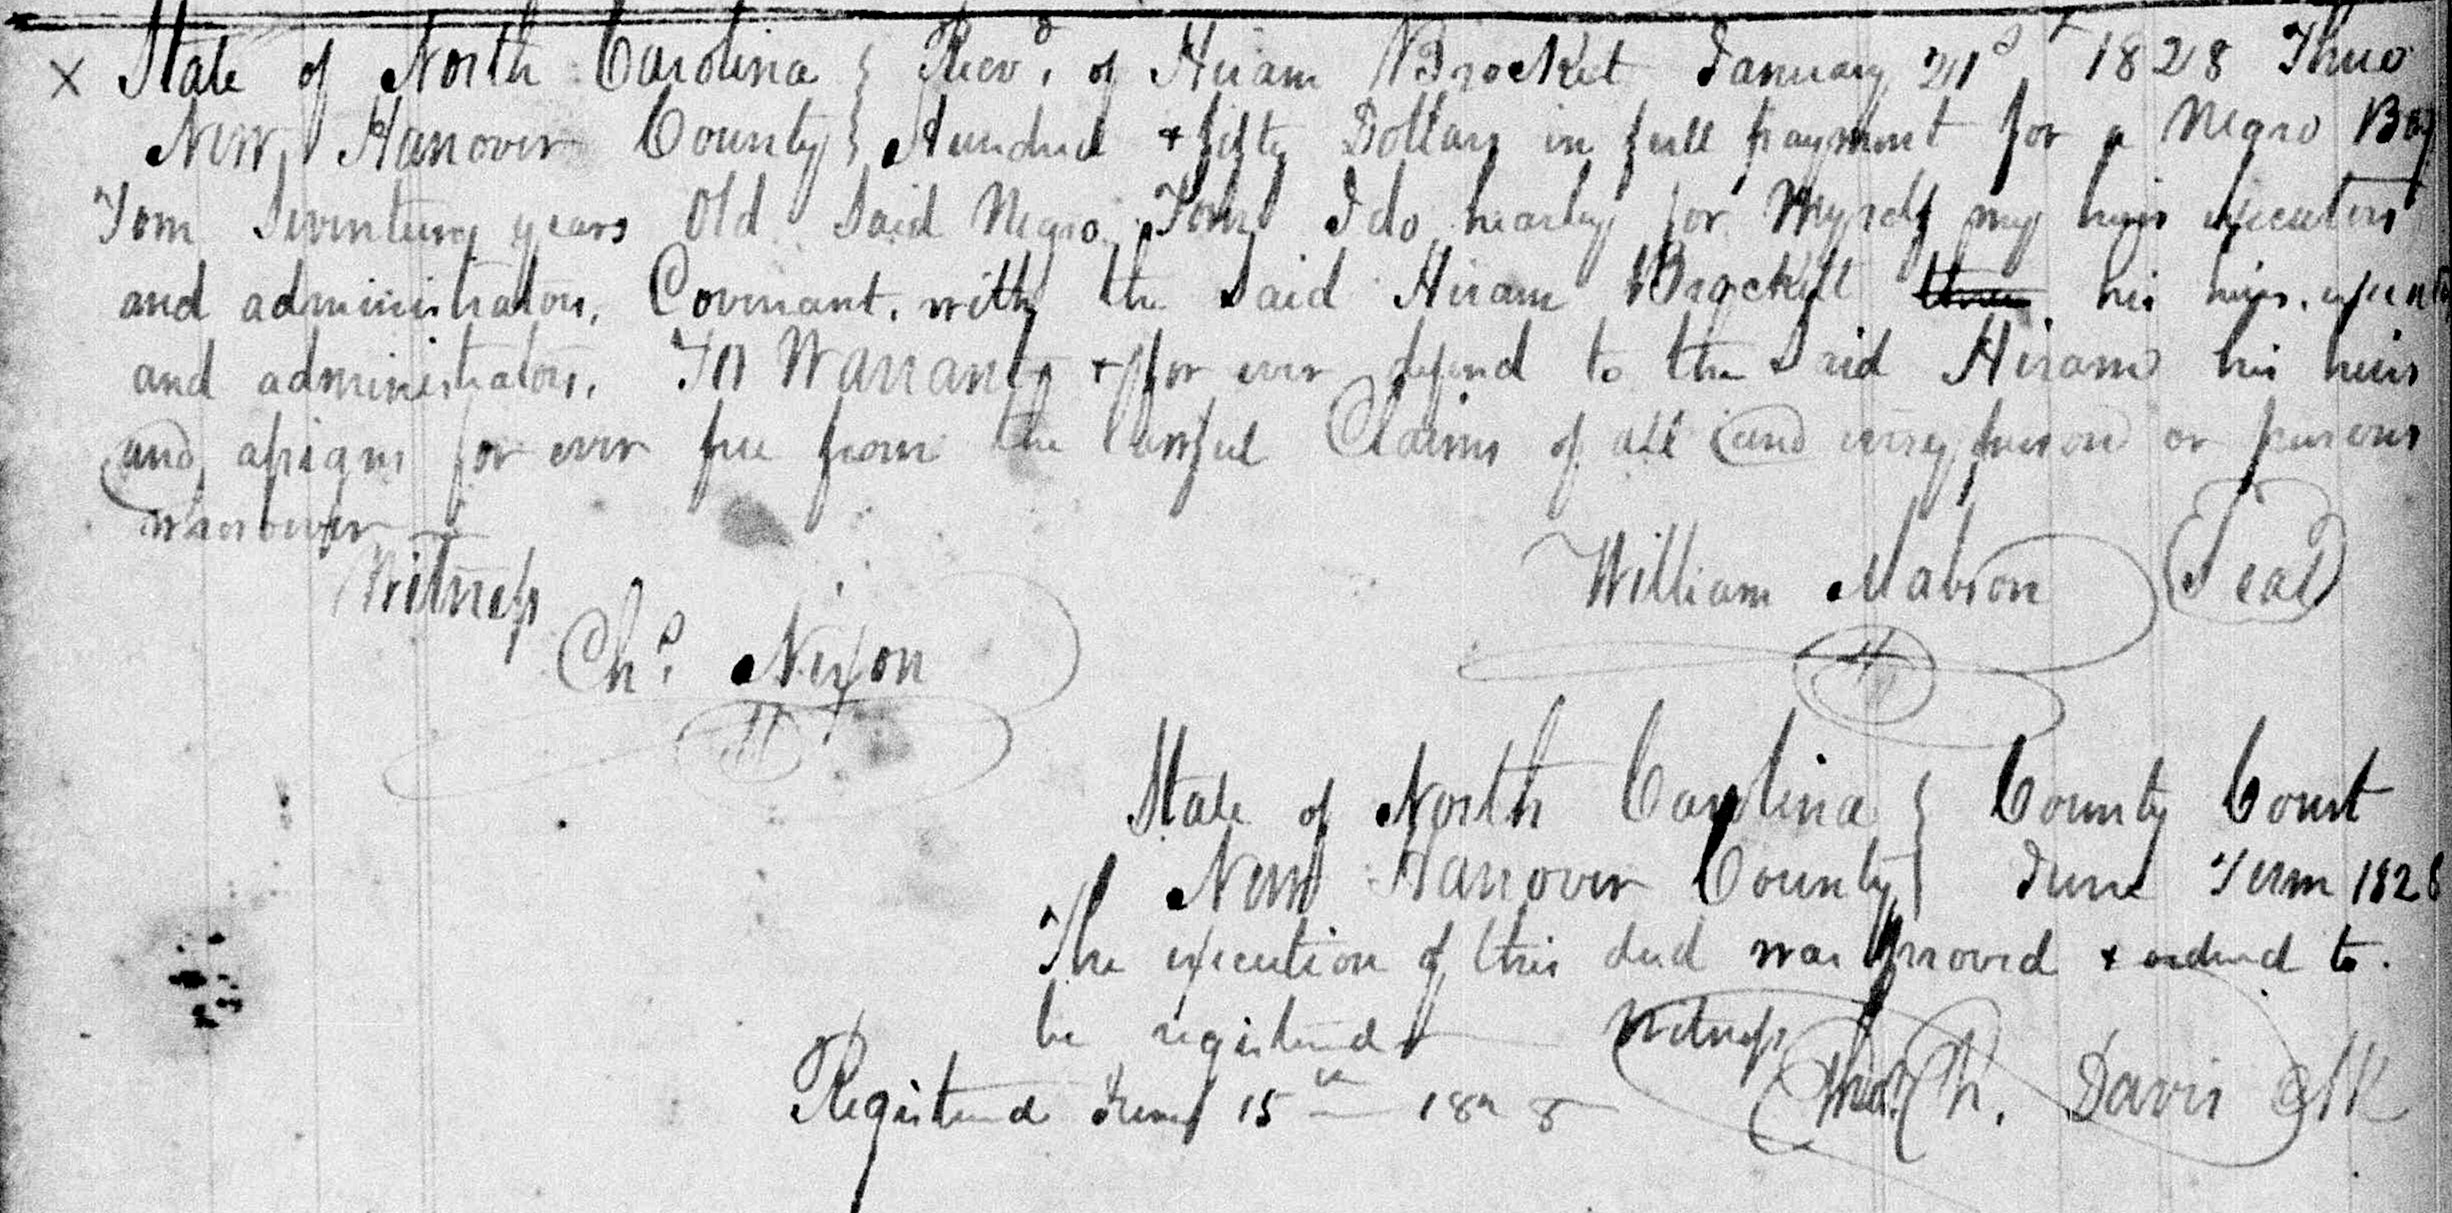 x State of North Carolina } Recvd. of Hiram Brocket January 21st 1828 Three
New Hanover County } Hundred + fifty Dollars in full payment for a Negro Boy
Tom Seventeen years Old Said Negro Tom I do hearby for Myself my heirs executors
and administrators, Covenant, with the Said Hiram Brockett his heirs, executors
and administrators, To Warrant + for ever defend to the Said Hiram his heirs
and assigns for ever free from the Lawful Claims of all and every person or persons
whosoever
Witness
William Mabson Seal
Chs. Nixon
State of North Carolina } County Court
New Hanover County } June Term 1828
The execution of this deed was proved + ordered to
be registered Witness
Registered June 15th 1828 Thos. Davis Clk